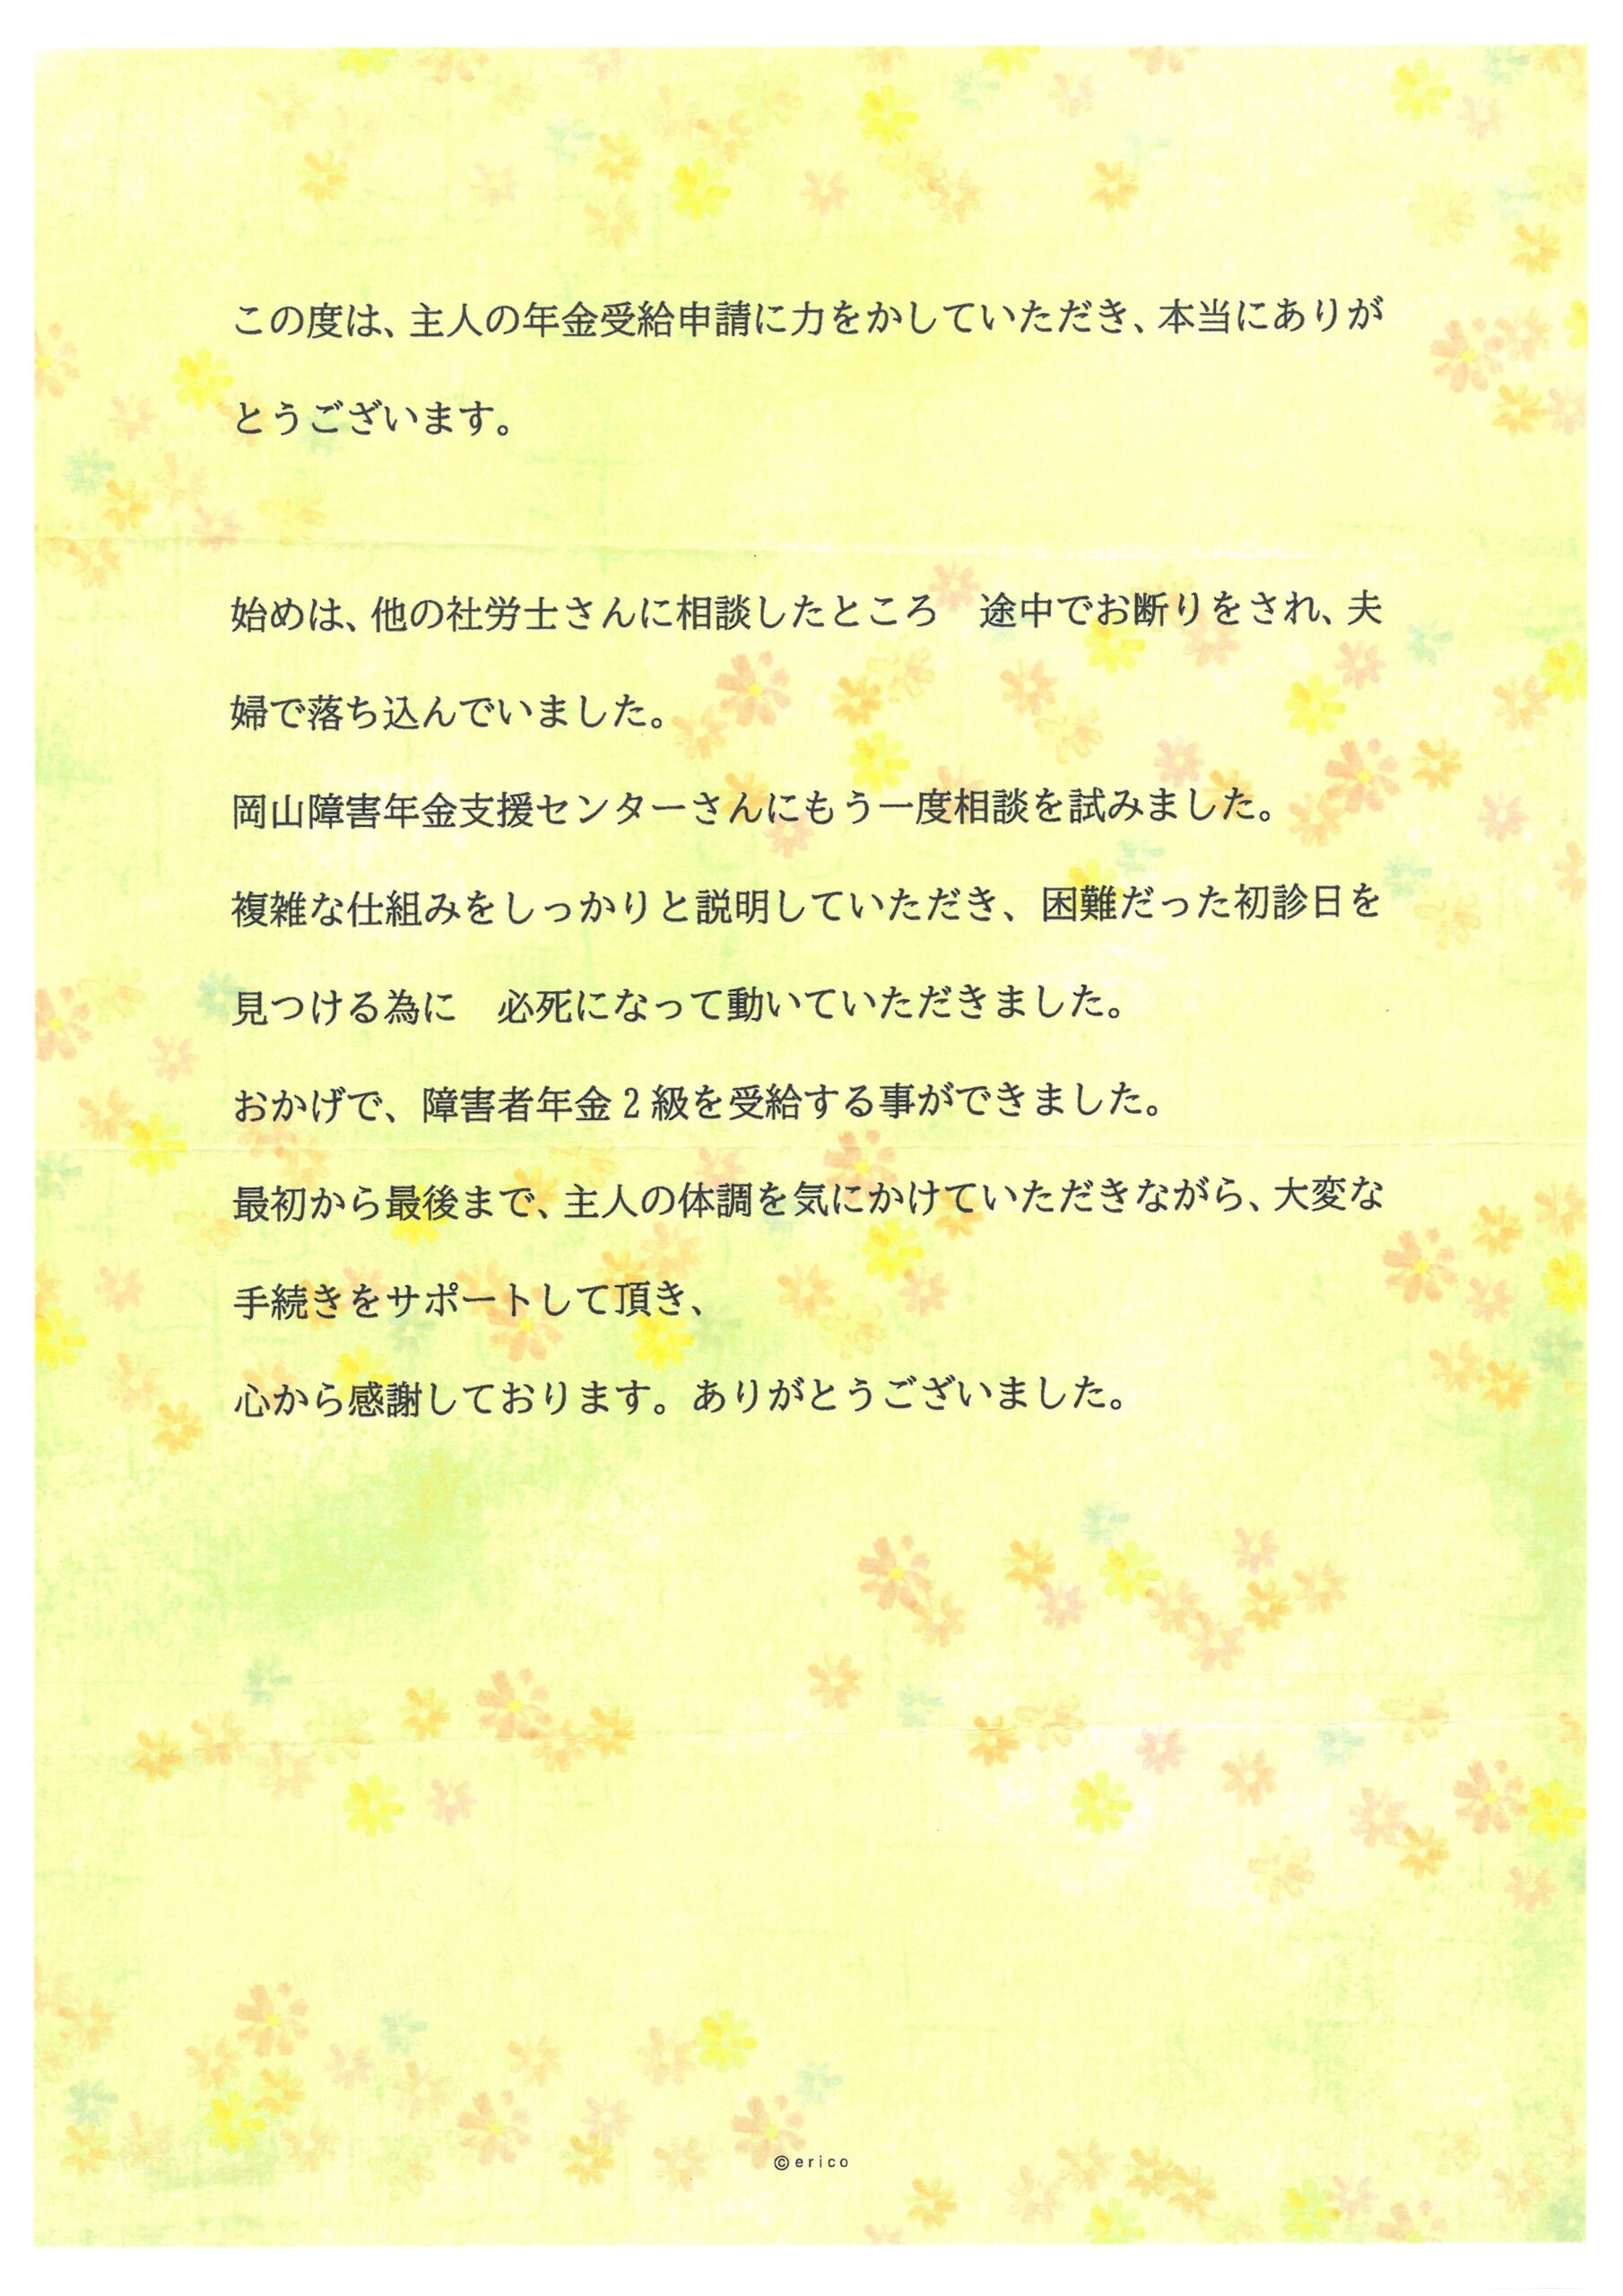 この度は、主人の年金受給申請に力をかしていただき、本当にありが
とうございます。
始めは、他の社労士さんに相談したところ　途中でお断りをされ、夫
婦で落ち込んでいました。
岡山障害年金支援センターさんにもう一度相談を試みました。
複雑な仕組みをしっかりと説明していただき、困難だった初診日を
見つける為に　必死になって動いていただきました。
おかげで、障害者年金２級を受給する事ができました。
最初から最後まで、主人の体調を気にかけていただきながら、大変な
手続きをサポートして頂き、
心から感謝しております。ありがとうございました。
©erico